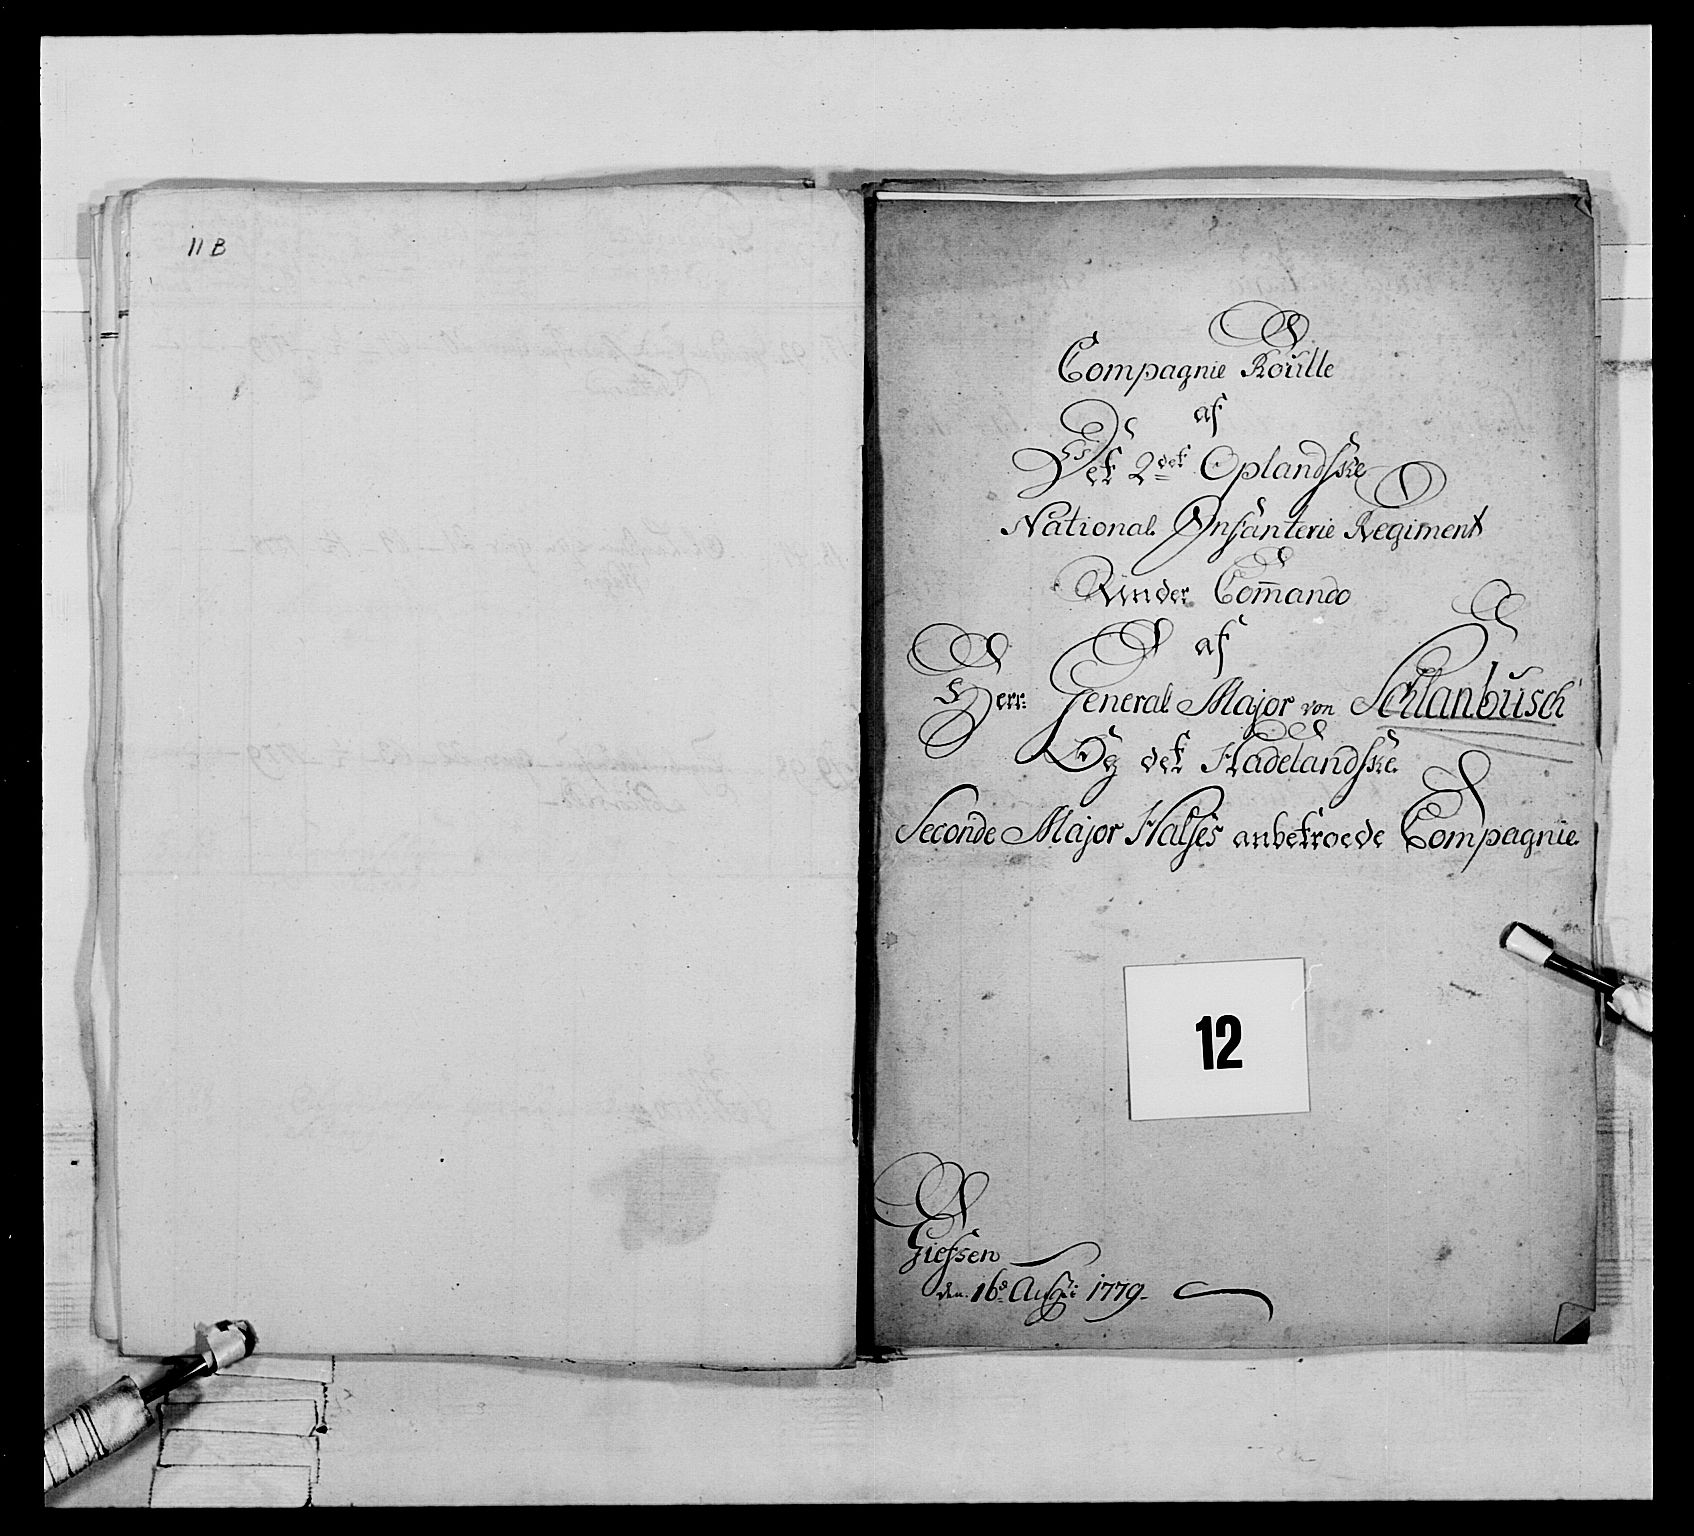 11 B
Compagnie Roulle
af
Det 2det Oplandske
National Infanterie Regiment
Under Com̄ando
af
Herr: General Major von Schlanbusch
Og det Hadelandske
Seconde Major Halses anbetroede Compagnie
12
Giefsen
den 16d Aug: 1779.